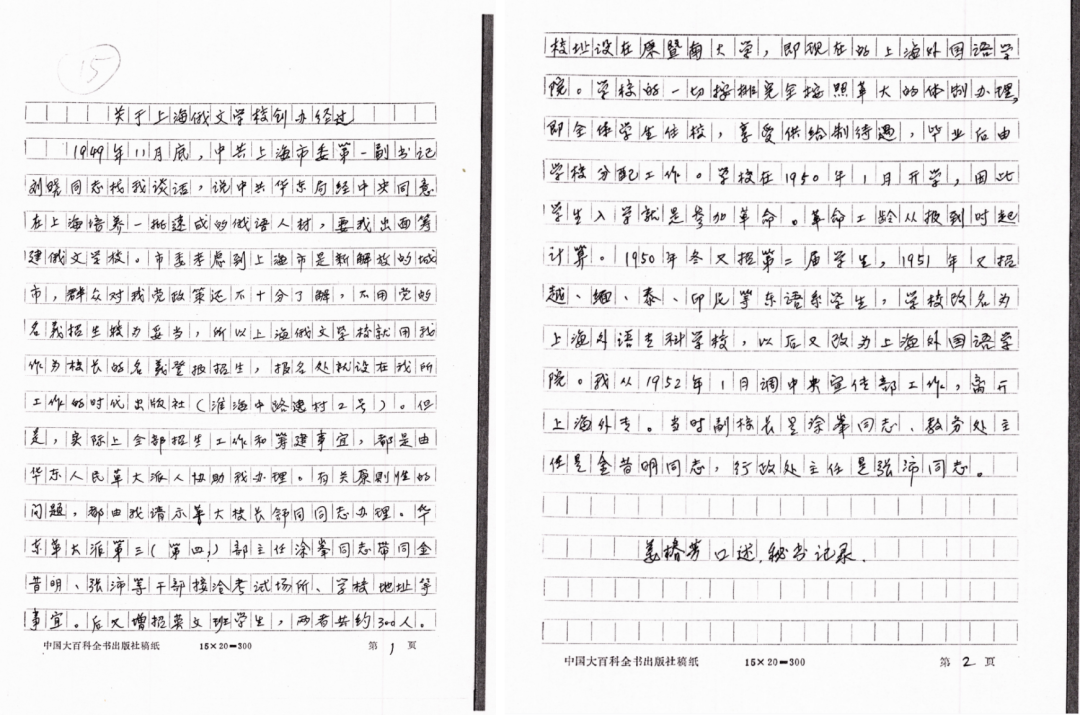 15
关于上海俄文学校创办经过
1949年11月底，中共上海市委第一副书记
刘晓同志找我谈话，说中共华东局经中央同意
在上海培养一批速成的俄语人材，要我出面筹
建俄文学校。市委考虑到上海市是新解放的城
市，群众对我党政策还不十分了解，不用党的
名义招生较为妥当，所以上海俄文学校就用我
作为校长的名义登报招生，报名处就设在我所
工作的时代出版社（淮海中路建村2号）。但
是，实际上全部招生工作和筹建事宜，都是由
华东人民革大派人协助我办理。有关原则性的
问题，都由我请示革大校长舒同同志办理。华
东革大派第三（第四？）部主任涂峯同志带同金
昔明、张沛等干部接洽考试场所、学校地址等
事宜。后又增招英文班学生，两者共约300人。
中国大百科全书出版社稿纸 15×20=300 第1页
校址设在原暨南大学，即现在的上海外国语学
院。学校的一切安排完全按照革大的体制办理，
即全体学生住校，享受供给制待遇，毕业后由
学校分配工作。学校在1950年1月开学，因此
学生入学就是参加革命。革命工龄从报到时起
计算。1950年冬又招第二届学生，1951年又招
越、缅、泰、印尼等东语系学生，学校改名为
上海外语专科学校，以后又改为上海外国语学
院。我从1952年1月调中央宣传部工作，离开
上海外专。当时副校长是涂峯同志、教务处主
任是金昔明同志，行政处主任是张沛同志。
姜椿芳口述，秘书记录.
中国大百科全书出版社稿纸 15×20=300 第2页